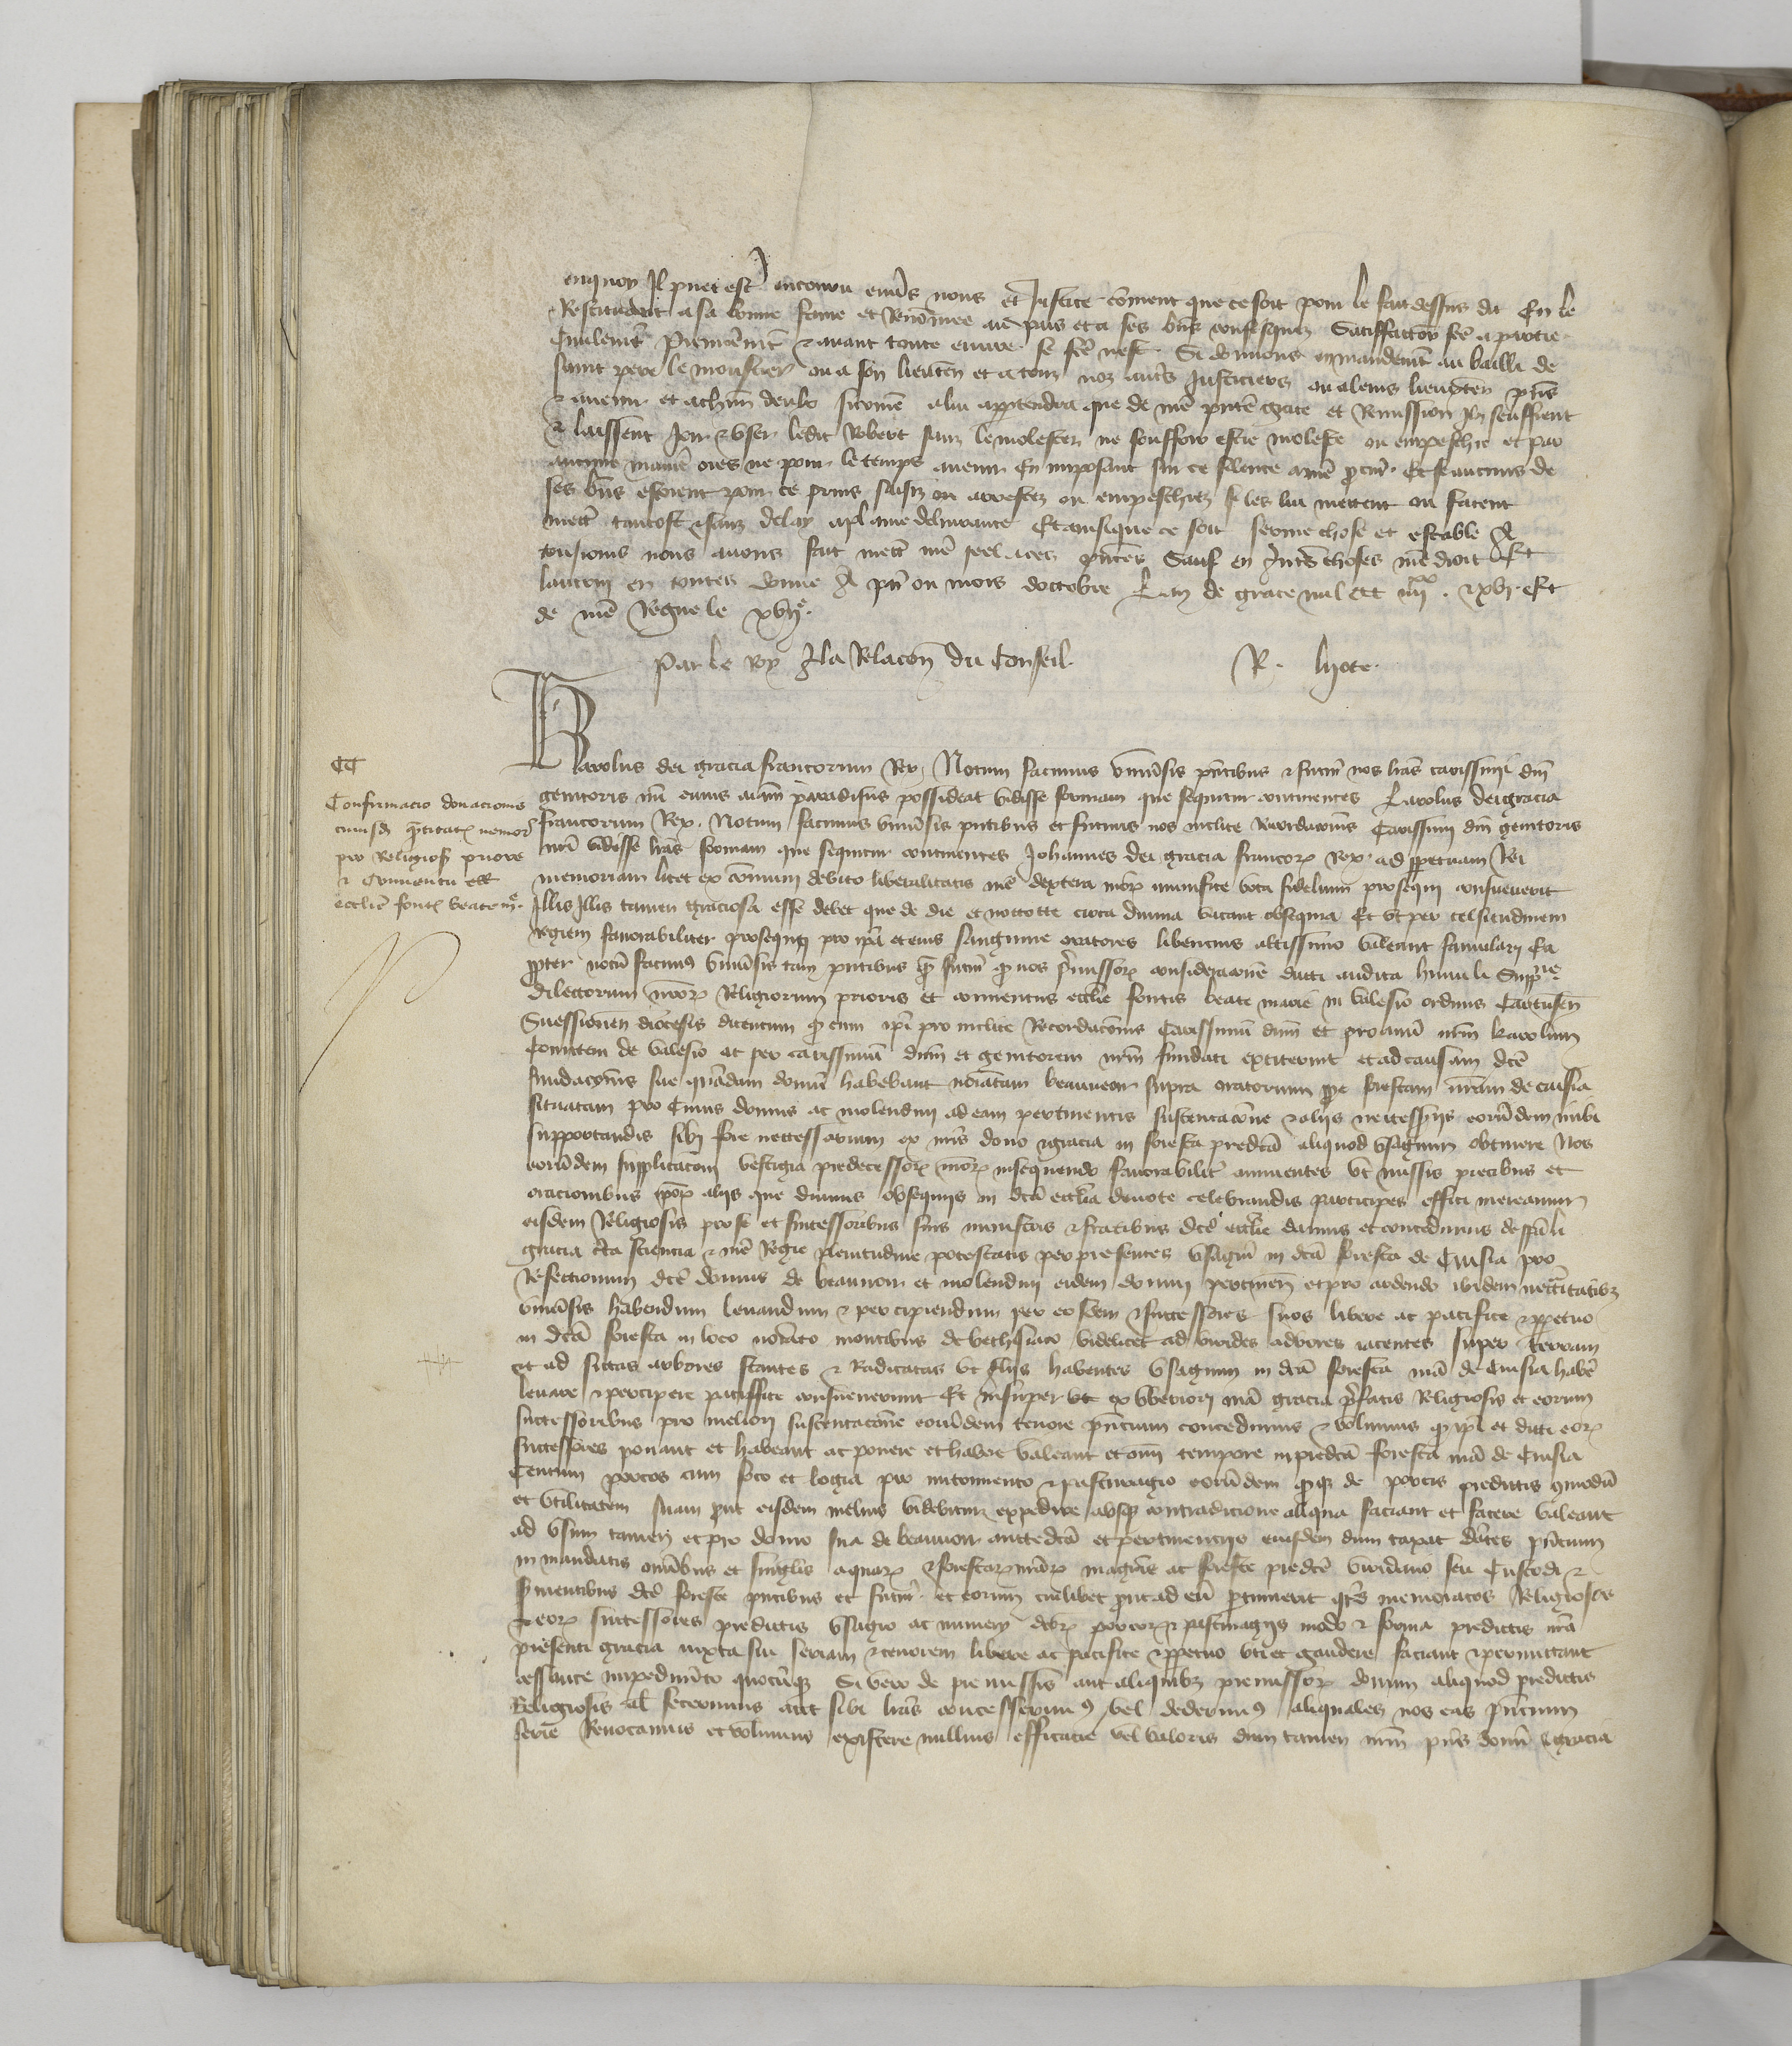 enquoy Il puet estre encouru envers nous et Justice coment que ce soit pour le fait dessus dit En le
Restituant a sa bonne fame et Renomee au pais et a ses biens confisquez Satisfaction fce a partie
Civilemt Premieremt & avant toute euvre se fce nest. Si donnons en mandemt au bailli de
saint pere le moustier ou a son lieuten et a touz noz autres Justiciers ou a leurs lieuxten pns
& avenir et a chun deulx sicome a lui appartendra que de nre pnte grace et Remission Ilz seuffrent
& laissent Joir & user ledit Robert sanz le molester ne souffrir estre moleste ou empeschie et par
aucune maniere ores ne pour le temps avenir En imposant sur ce silence a nre procur. Et se aucuns de
ses biens estoient pour ce prins saisiz ou arrestez ou empeschiez si les lui mettent ou facent
mett tantost & sanz delay a plaine delivrance Et ainsi que ce soit ferme chose et estable A
tousjours nous avons fait mett nre seel a ces pntes Sauf en autres choses nre droit Et
lautruy en toutes donne A pis ou mois doctobre Lan de grace mil CCC iiijxx. & xvj. Et
de nre Regne le xvije.
Par le Roy A la Relacon du Conseil. R. lyote.
CC
Confirmacio donacionis
cuiusd qntitatis nemor
pro Religiosis priore
& Conventu etc
ecclie fontis beate me.
Karolus dei gracia francorum Rex, Notum facimus universis pntibus & futuris nos lras carissimi dni
genitoris nri cuius aiam paradisus possideat vidisse formam que sequitur continentes Karolus dei gracia
francorum Rex. Notum facimus universis pntibus et futuris nos inclite recordacionis Carissimi dni genitoris
nri vidisse lras formam que sequitur continentes Johannes dei gracia francor Rex. ad perpetuam Rei
memoriam licet ex communi debito liberalitatis nre dextera nobis munifice vota fidelium prosequi consueverit
Illis Illis tamen graciosa esse debet que de die et noctotte circa divina vacant obsequia Et ut per celsitudinem
regiem favorabiliter prosequti pro ipa et eius sanguine oratores libencius altissimo valeant famulari Ea
propter notum facimus universis tam pntibus qm futuris q nos premissor consideracione ducti audita humili supplie
dilectorum nror Religiorum prioris et conventus ecclie fontis beate marie in valesio ordinis Cartusien
Suessionen diocesis dicencium q cum ipi pro inclite Recordaconis Carissimum dnm et proavum nrm Karolum
Comitem de valesio ac per carissimum dnm et genitorem nrm fundati extiterint et ad causam dce
fundaconis sue quadam domum habebant noiatam beauveoir supra oratorium prope forestam nram de cuisia
situatam pro cuius domus ac molendini ad eam pertinentis sustentacone & aliis necessariis eorumdem inibi
supportandis sibi fore necessarium ex nris dono & gracia in foresta predca aliquod usagium obtinere Nos
eorumdem supplicacoi vestigia predecessor nror insequendo favorabiliter annuentes ut missis precibus et
oracionibus ipor aliis que divinis obsequiis in dca ecclia devote celebrandis participes effici mereamur
eisdem Religiosis pro se et successoribus suis ministris & fratribus dce ecclie damus et concedimus de spali
gracia certa sciencia & nre Regie plenitudine potestatis per presentes usagium in dca foresta de Cuisia pro
Refectionum dce domus de beauvoir et molendini eidem domui pertinen et pro ardendo ibidem necessitatibus
universis habendum levandum & percipiendum per eosdem & successores suos libere ac pacifice & perpetuo
in dca foresta in loco nominato montibus de bethisiaco videlicet ad virides arbores iacentes super terram
et ad siccas arbores stantes & Radicatas ut Alijs habentes usagium in dca foresta nra de Cuisia habere
levare & percipere paciffice consueverunt Et insuper ut ex uberiori nra gracia prefatis Religiosis et eorum
successoribus pro meliori sustentacone eorumdem tenore pncium concedimus & volumus q ipi et dicti eor
successores ponant et habeant ac ponere et habere valeant et omi tempore in predca foresta nra de Cuisia
Centum porcos cum foco et logia pro nutrimento & pasturagio eorumdem quiq de porcis predictis commodum
et utilitatem suam prout eisdem melius videbitur expedire absq contradicione aliqua faciant et facere valeant
ad usum tamen et pro domo sua de beauvoir antedca et pertinencijs eiusdem dum taxat dantes pncium
in mandatis omibus et singulis aquar & forestar nrar magris ac foreste predce viridario seu Custodi &
servientibus dce foreste pntibus et futuris. et eorum cuilibet prout ad eum pertinuerit qtus memoratos Religiosos
& eor successores predictis usagio ac numero dcor porcor & pasturagijs modo & forma predictis nra
presenti gracia iuxta sui seriam & tenorem libere ac pacifice & perpetuo uti et gaudere faciant & permittant
cessante impedimento quocumq Si vero de premissis aut aliquibus premissor donum aliquod predictis
Religiosis al fecerimus aut sibi lras concesserimus vel dederimus aliquales nos eas pncium
serie Revocamus et volumus existere nullius efficacie vel valoris dum tamen nrm pns donum & gracia